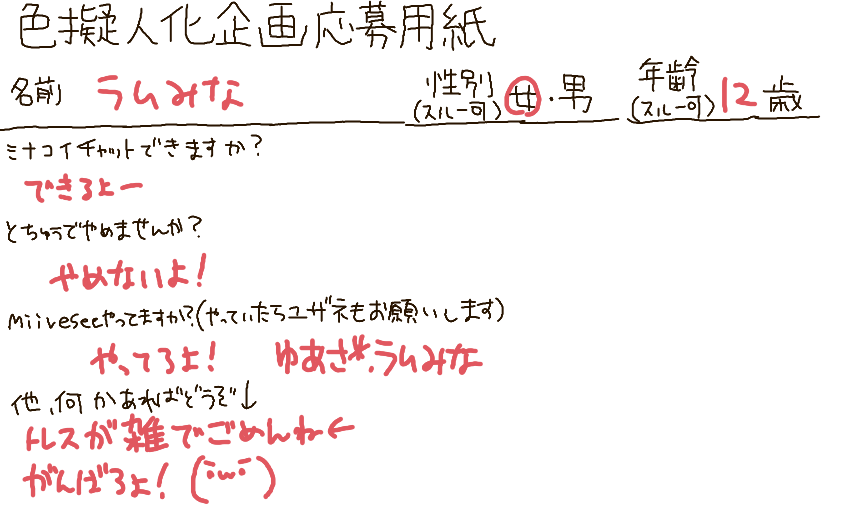 色擬人化企画応募用紙
名前 ラムみな 性別(スルー可) 女・男 年齢(スルー可) 12歳
ミナコイチャットできますか?
できるよー
とちゅうでやめませんか?
やめないよ!
miiverseeやってますか?(やっていたらユザネもお願いします)
やってるよ! ゆあざ*,ラムみな
他、何かあればどうぞ↓
トレスが雑でごめんね←
がんばるよ!(¨ω¨)